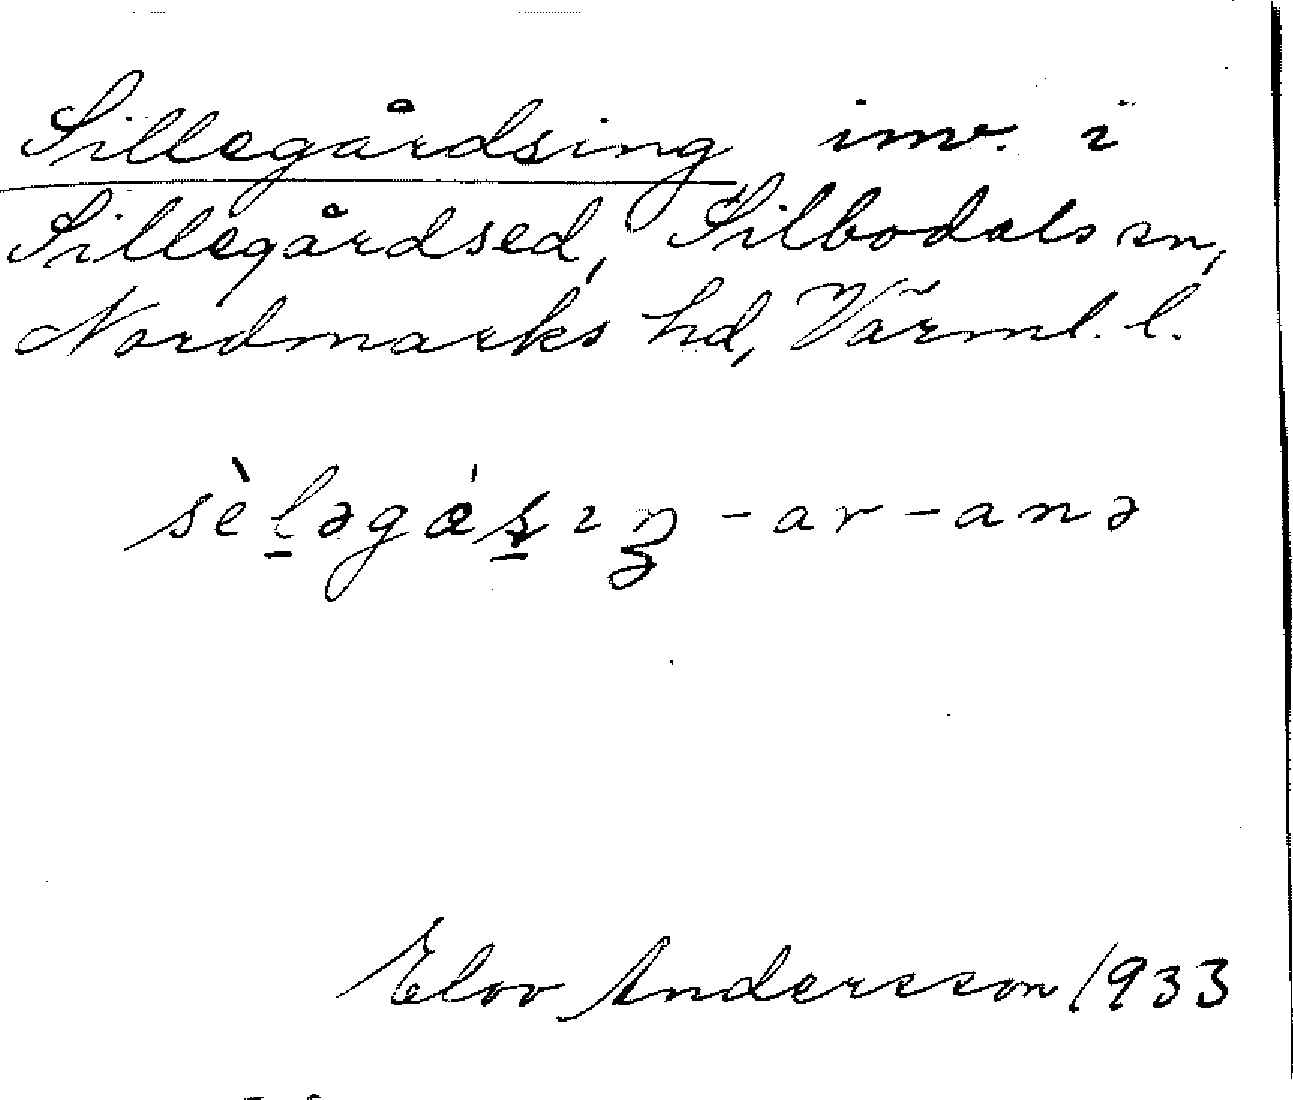 Sillegårdsing inv. i
Sillegårdsed, Silbodals sn,
Nordmarks hd, Värml. l.
sèl̲əgás̲ıŋ -ar -anə
Elov Andersson 1933